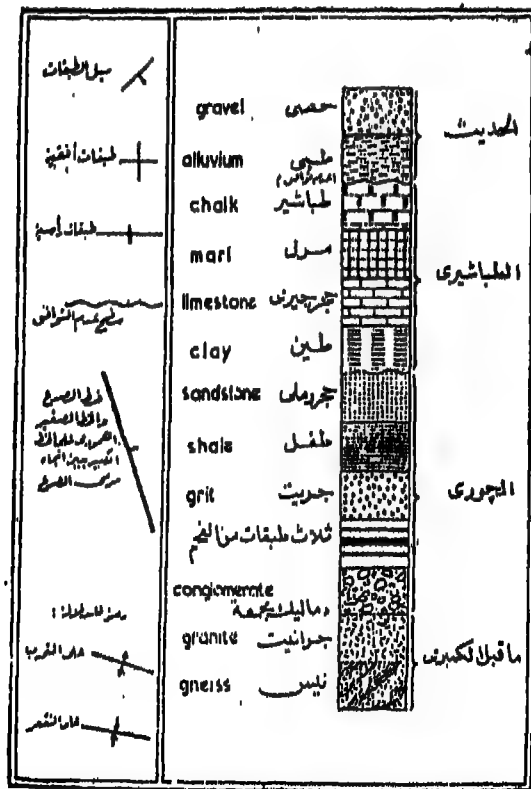 ميل الطبقات
طبقات أفقية
طبقات رأسية
سطح عدم التوافق
خط الصدع
والخط الصغير
العمودى على الخط
الكبير يبين اتجاه
مرمى الصدع
محور التحدب
محور التقعر
gravel حصى
alluvium طمى
chalk طباشير
marl مرل
limestone حجر جيرى
clay طين
sandstone حجر رملى
shale طفل
grit جريت
ثلاث طبقات من الفحم
conglomerate
granite جرانيت
gneiss نيس
الحديث
الطباشيرى
الجورى
ما قبل الكمبرى